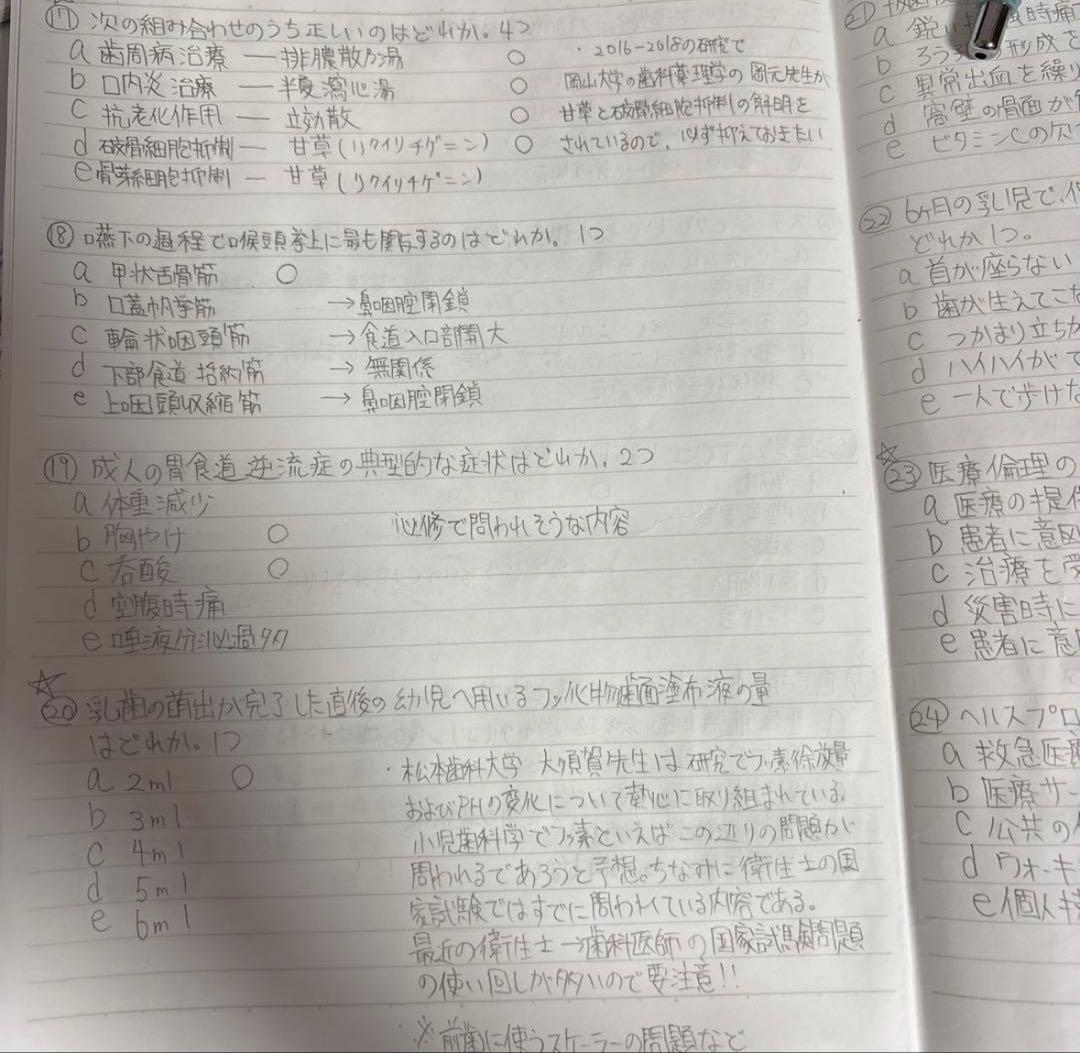 ⑰ 次の組み合わせのうち正しいのはどれか。4つ
a 歯周病治療 — 排膿散及湯 ○
b 口内炎治療 — 半夏瀉心湯 ○
c 抗老化作用 — 立効散 ○
d 破骨細胞抑制 — 甘草(リクイリチゲニン) ○
e 骨芽細胞抑制 — 甘草(リクイリチゲニン)
・2016-2018の研究で
岡山大学の歯科薬理学の岡元先生が
甘草と破骨細胞抑制の解明を
されているので、必ず抑えておきたい
⑱ 嚥下の過程で喉頭挙上に最も関与するのはどれか。1つ
a 甲状舌骨筋 ○
b 口蓋帆挙筋 → 鼻咽腔閉鎖
c 輪状咽頭筋 → 食道入口部開大
d 下部食道括約筋 → 無関係
e 上咽頭収縮筋 → 鼻咽腔閉鎖
⑲ 成人の胃食道逆流症の典型的な症状はどれか。2つ
a 体重減少
b 胸やけ ○
c 呑酸 ○
d 空腹時痛
e 唾液分泌過多
必修で問われそうな内容
☆
⑳ 乳歯の萌出が完了した直後の幼児へ用いるフッ化物歯面塗布液の量
はどれか。1つ
a 2ml ○
b 3ml
c 4ml
d 5ml
e 6ml
・松本歯科大学 大須賀先生は研究でフッ素徐放量
およびPHの変化について熱心に取り組まれている。
小児歯科学でフッ素といえばこの辺りの問題が
問われるであろうと予想。ちなみに衛生士の国
家試験ではすでに問われている内容である。
最近の衛生士→歯科医師の国家試験問題
の使い回しが多いので要注意!!
・※前歯に使うスケーラーの問題など
㉑
a 鋭い
b
c 異常出血を繰り
d 窩壁の骨面が
e ビタミンCの欠
㉒ 6ヶ月の乳児で、
どれか1つ。
a 首が座らない
b 歯が生えてこな
c つかまり立ちが
d ハイハイがで
e 一人で歩けな
☆
㉓ 医療倫理の
a 医療の提供
b 患者に意図
c 治療を受
d 災害時に
e 患者に意
㉔ ヘルスプロ
a 救急医療
b 医療サー
c 公共の
d ウォーキ
e 個人